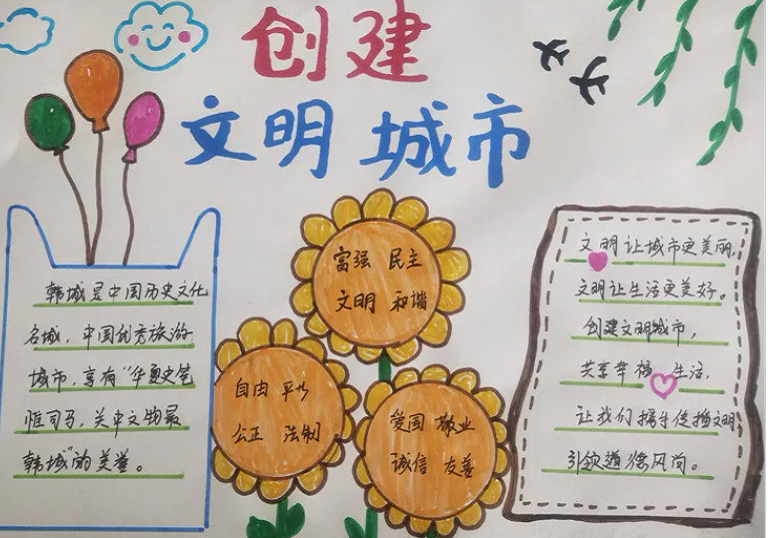 创建
文明城市
韩城是中国历史文化
名城，中国优秀旅游
城市，享有“华夏史笔
惟司马，关中文物最
韩城”的美誉。
富强 民主
文明 和谐
自由 平等
公正 法制
爱国 敬业
诚信 友善
文明让城市更美丽
文明让生活更美好。
创建文明城市，
共享幸福生活，
让我们携手传播文明
引领道德风尚。